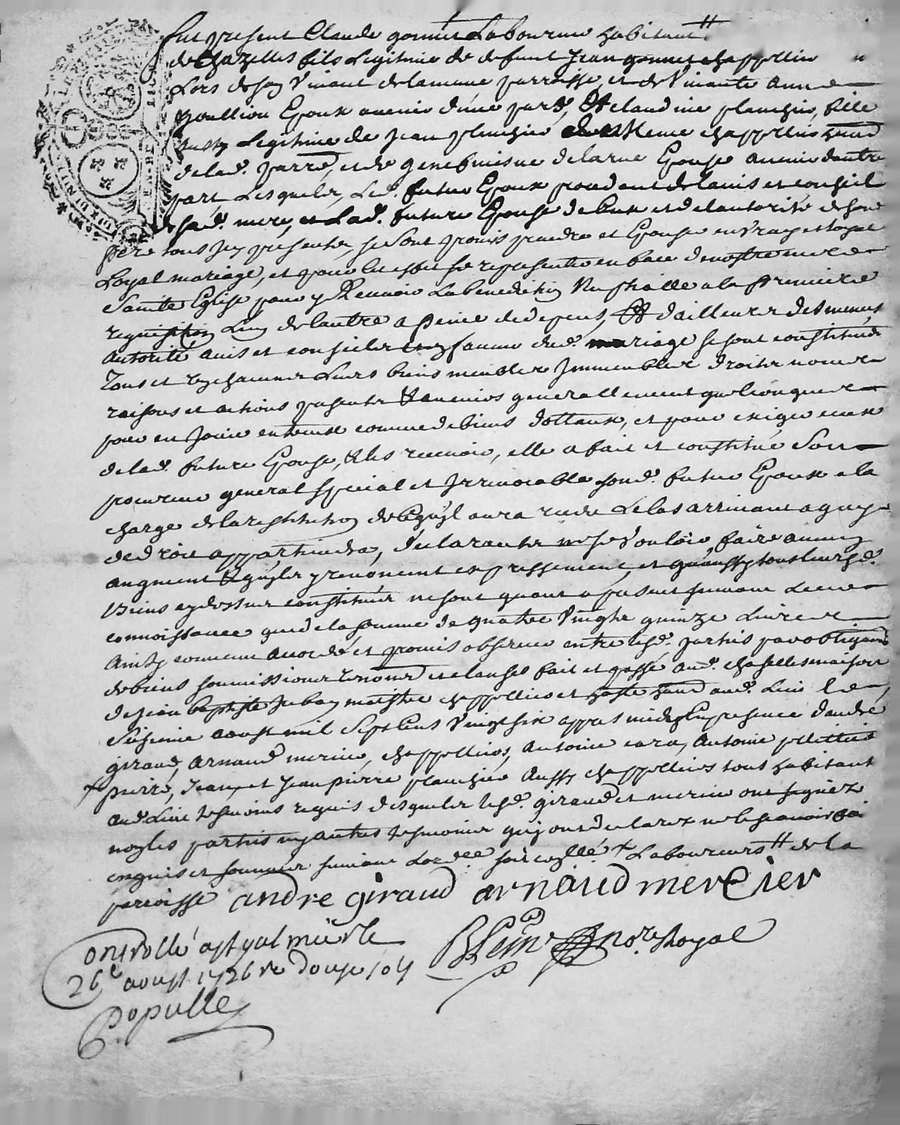 fut present Claude gonnet Laboureur habitant
de Chazelles fils Legitime de defunt Jean gonnet chappellier
Lors de son Vivant de la meme parroisse et de Vivante anne
poullion Epoux avenir d'une part, Et claudine planchier, fille
aussy Legitime de Jean planchier chappellier
de lad. parr. et de delarue Epouse avenir d'autre
part Lesquels, Led. futur Epoux procedant de lavis et conseil
de sad. mere, et Lad. future Epouse de luy et de l'autorité de son
pere tous Icy presents, se sont promis prendre et Epouser en Vray et
Loyal mariage, et pour cet effet se representer en face de nostre mere
Sainte Eglise pour y Recevoir La benediction Nuptialle a la premiere
requisition Lun de l'autre a peine de depens, Et d'ailleurs des memes
autorité avis et conseil en faveur dud. mariage se sont constitués
Tous et un chacun Leurs biens meubles Immeubles droits noms
raisons et actions presents & avenirs generallement quelconques
pour en Jouir comme de biens dottaux, et pour exiger ceux
de lad. future Epouse, & les recevoir, elle a fait et constitué Son
procureur general special et Irrevocable sond. futur Epoux a la
charge de la restitution de ce qu'il aura receu Le cas arrivant a qui
de droit appartiendra, declarants ne se Vouloir faire aucun
augment & qu'ils y renoncent expressement et qu'aussy tous leursd.
biens cy dessus constitués ne sont quant a present suivant Leur
connoissance que de la somme de quatre Vingts quinze Livres
Ainsy convenu accordé et promis observer entre lesd. parties par obligation
de biens soumissions renond. et clauses fait et passé aud. chaselles maison
de Jean baptiste maistre chappellier et aud. Lieu Le
Seisieme aoust mil Sept Cens Vingt six appres midy En presence d'andré
giraud, Arnaud mercier, chappelliers, Antoine Antoine
pierre, Jean, et Jean pierre planchier Aussy chappelliers tous habitant
aud. Lieu tesmoins requis desquels lesd. giraud et mercier ont signéz
non les parties ny autres tesmoins qui ont declaréz ne le sçavoir
enquis et sommés suivant Lord.ce x Laboureurs de la
parroisse andre giraud arnaud mercier
Controllé a st galmier le
26e aoust 1726 re douze sols
Populle not. Royal